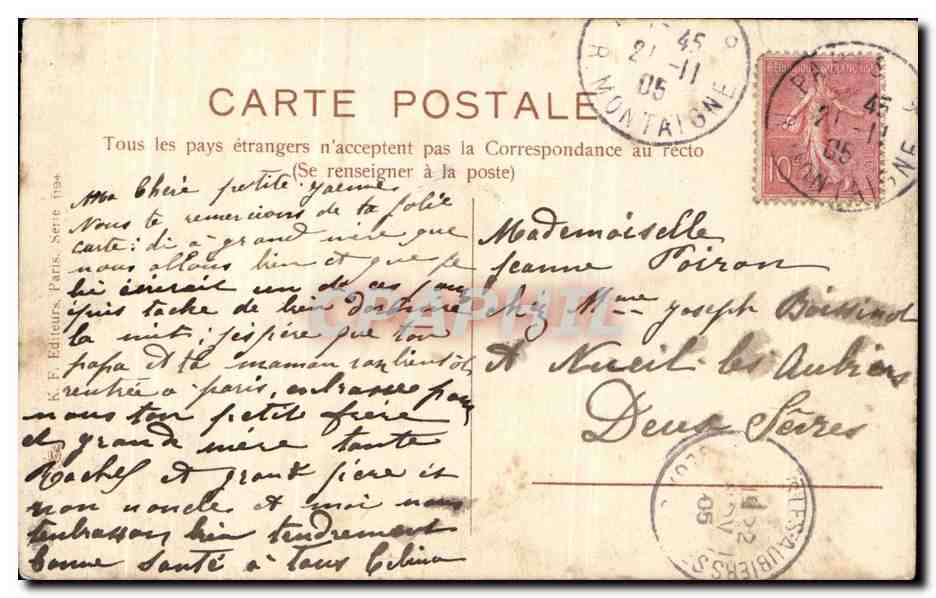 CARTE POSTALE
Tous les pays étrangers n'acceptent pas la Correspondance au recto
(Se renseigner à la poste)
K. F. Editeurs, Paris, Série 1194
45
21 -11
05
R MONTAIGNE
45
21 -11
05
MONTAIGNE
10
ma Chère petite
Nous te remercions de ta jolie
carte: di a grand mère que
nous allons bien et que je
lui écrirait un de ces jour
puis tache de bien dormire
la nuit; j'espère que ton
papa et ta maman son bientôt
rentrée a paris, embrasse pour
nous ton petit frère
et grand mère tante
Rachel et grand père et
mon noncle et moi nous
tembrasson bien tendrement
bonne santé à tous Celina
Mademoiselle
Jeanne Poiron
chez Mme Joseph Boissinot
A Nueil les Aubiers
Deux Sèvres
LES-AUBIERS
22
05
CPAPHIL